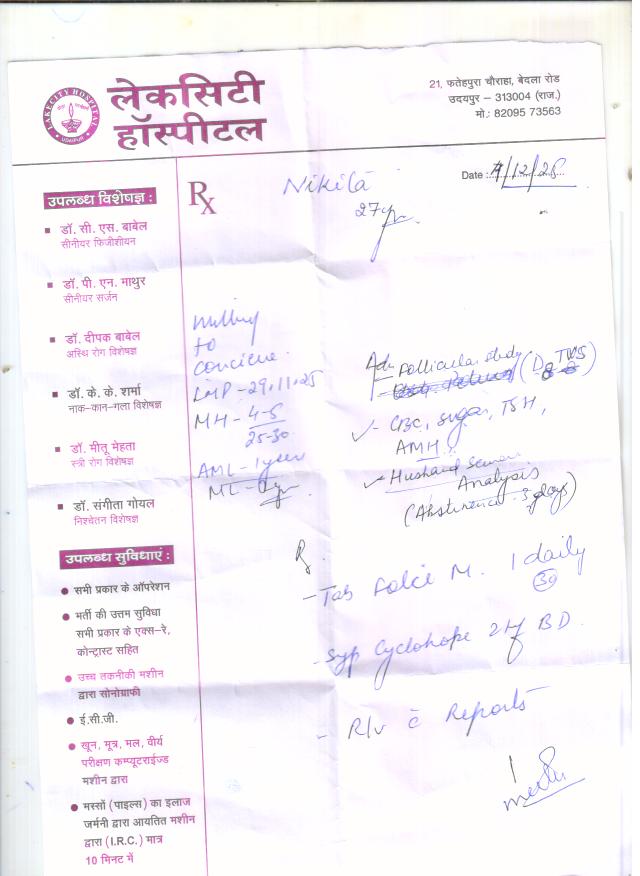 LAKECITY HOSPITAL
UDAIPUR
लेकसिटी
हॉस्पीटल
21, फतेहपुरा चौराहा, बेदला रोड
उदयपुर – 313004 (राज.)
मो.: 82095 73563
Date : /12/25
Rx
Nikita
27yr
उपलब्ध विशेषज्ञ :
डॉ. सी. एस. बाबेल
सीनीयर फिजीशीयन
डॉ. पी. एन. माथुर
सीनीयर सर्जन
डॉ. दीपक बाबेल
अस्थि रोग विशेषज्ञ
डॉ. के. के. शर्मा
नाक-कान-गला विशेषज्ञ
डॉ. मीतू मेहता
स्त्री रोग विशेषज्ञ
डॉ. संगीता गोयल
निश्चेतन विशेषज्ञ
उपलब्ध सुविधाएं :
सभी प्रकार के ऑपरेशन
भर्ती की उत्तम सुविधा
सभी प्रकार के एक्स-रे,
कोन्ट्रास्ट सहित
उच्च तकनीकी मशीन
द्वारा सोनोग्राफी
ई.सी.जी.
खून, मूत्र, मल, वीर्य
परीक्षण कम्प्यूटराईज्ड
मशीन द्वारा
मस्सों (पाइल्स) का इलाज
जर्मनी द्वारा आयतित मशीन
द्वारा (I.R.C.) मात्र
10 मिनट में
to
LMP - 29.11.25
MH - 4-5
25-30
AML - 1 year
ML -
Adv
Follicular study
TVS
CBC, Sugar, TSH,
AMH
Husband Semen
Analysis
(Abstinence - 3 days)
R
- Tab Folic M. 1 daily
30
- Syp Cyclohope 2tsf BD
- R/v c̄ Reports